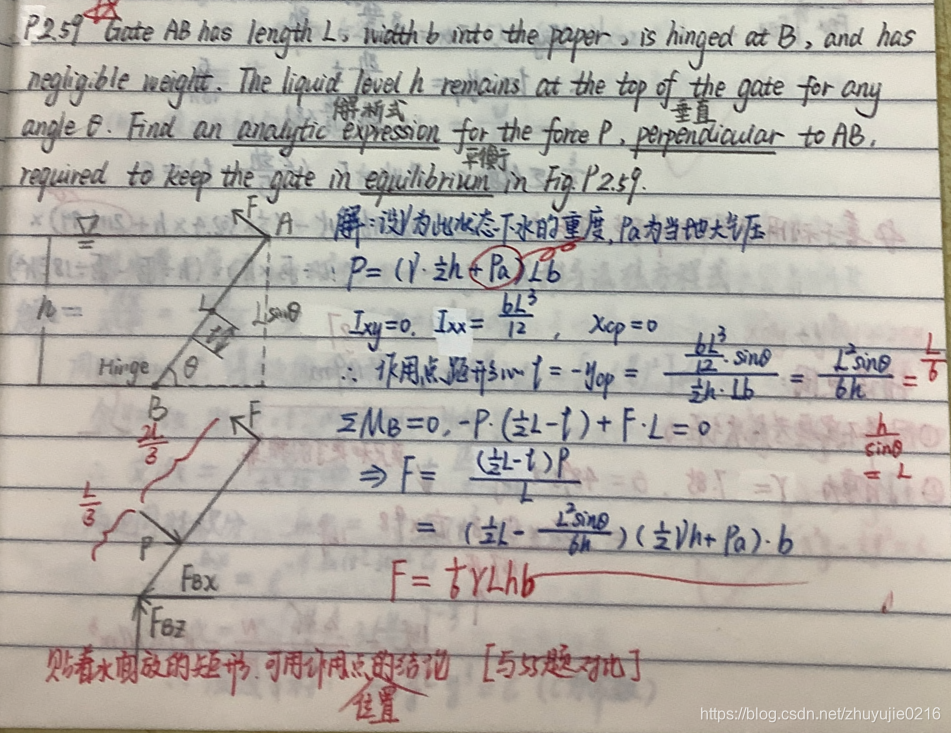 P2.59 Gate AB has length L, width b into the paper, is hinged at B, and has
negligible weight. The liquid level h remains at the top of the gate for any
解析式 垂直
angle θ. Find an analytic expression for the force P, perpendicular to AB,
平衡
required to keep the gate in equilibrium in Fig. P2.59.
F A
解:设γ为此状态下水的重度, Pa为当地大气压
P = (γ·½h + Pa) Lb
h =
L Lsinθ
Ixy=0. Ixx= bL³/12 , xcp=0
Hinge θ
∴ 作用点距形心 t = -ycp = (bL³/12 · sinθ)/(½h·Lb) = L²sinθ/6h = L/6
B F
ΣM_B=0, -P·(½L-t) + F·L = 0
h/sinθ = L
2L/3
⇒ F = (½L-t)P / L
L/3
P
= (½L - L²sinθ/6h)(½γh+Pa)·b
FBX
F = ⅙γLhb
FBZ
贴着水面放的矩形,可用作用点的结论 [与55题对比]
位置
https://blog.csdn.net/zhuyujie0216